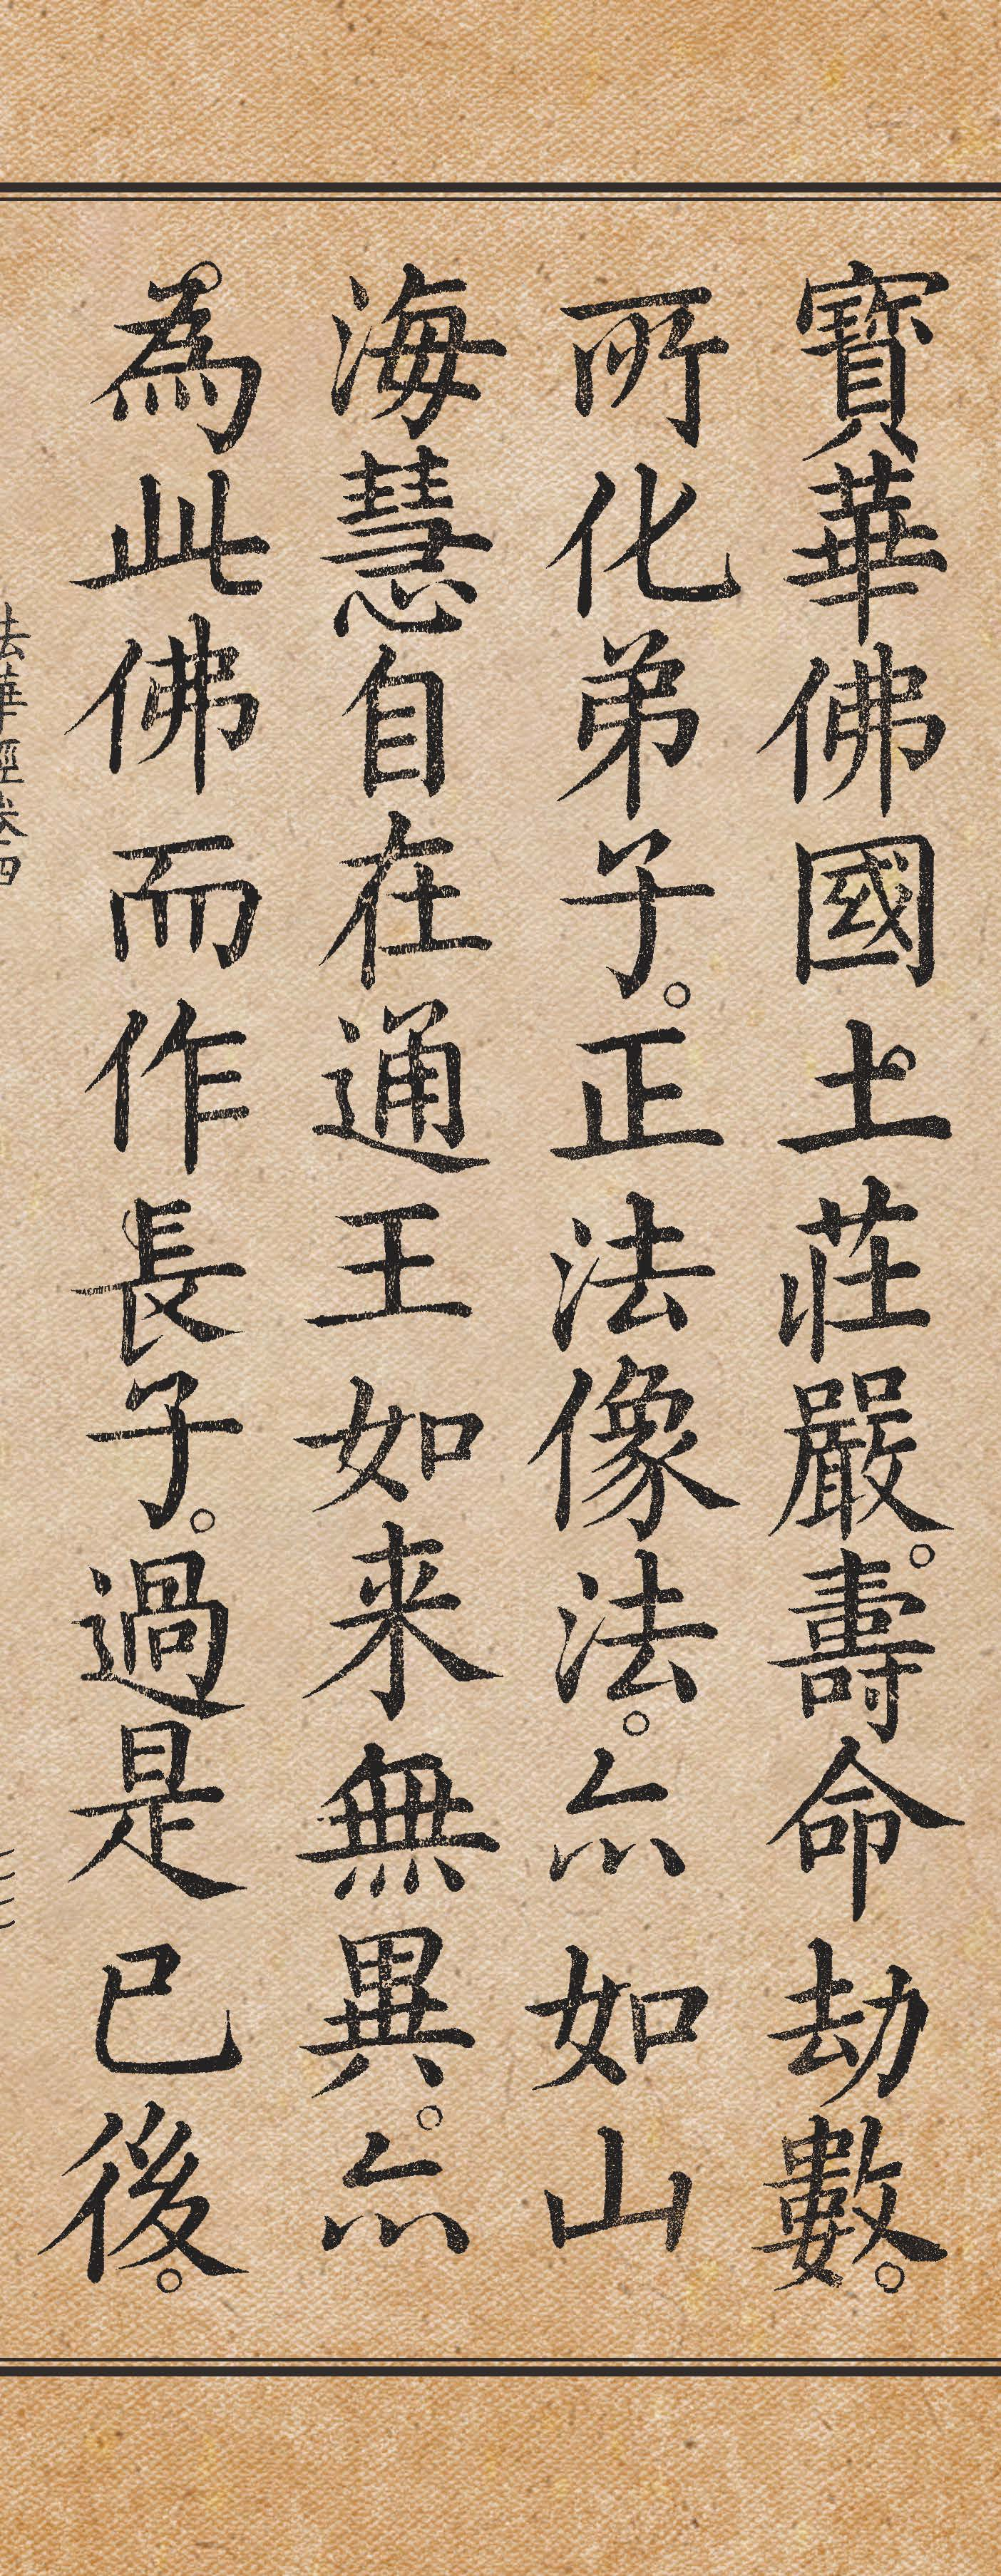 寶華佛國土莊嚴。壽命劫數。
所化弟子。正法像法。亦如山
海慧自在通王如来無異。亦
為此佛而作長子。過是已後。
法華經卷四